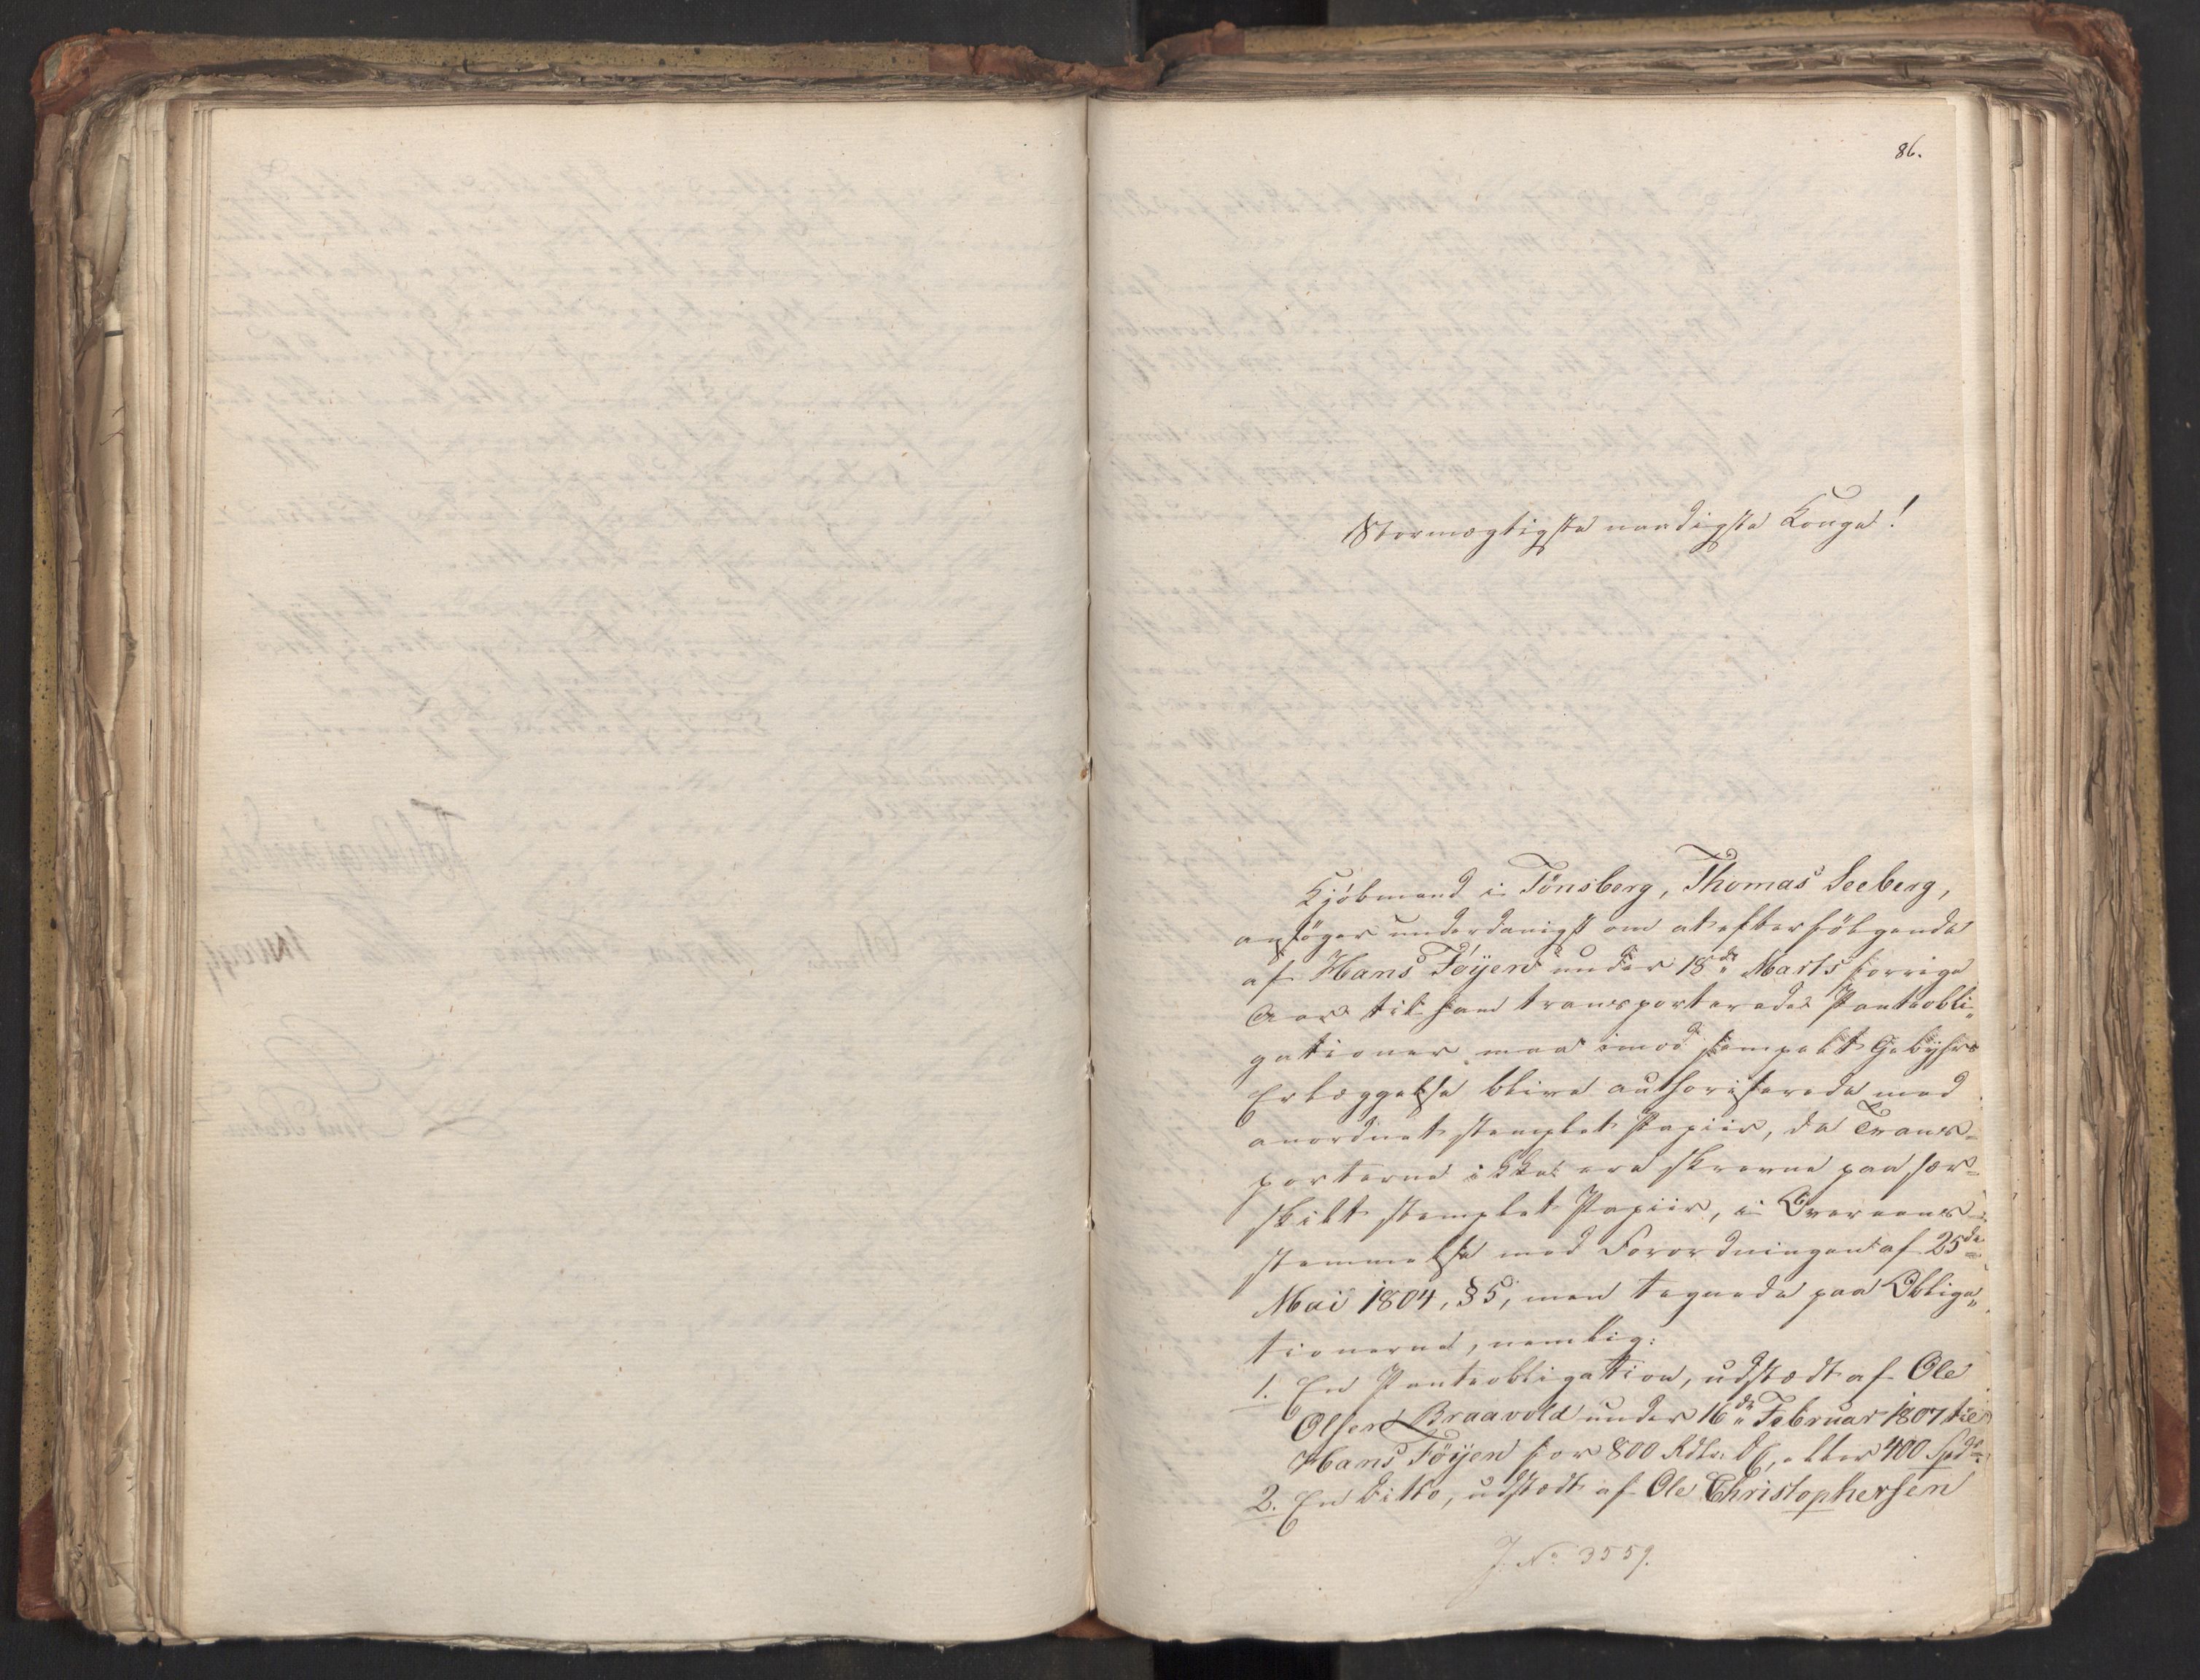 86.
Stormægtigste naadigste Konge!
Kjöbmand i Tönsberg, Thomas Seeberg,
ansöger underdanigst om at efterfölgende
af Hans Föyen under 18de Marts forrige
Aar til ham transporterede Panteobli-
gationer maa imod simpelt Gebyhrs
Erlæggelse blive authoriserede med
anordnet stemplet Papiir, da Trans-
porterne ikke ere skrevne paa sær-
skilt stemplet Papiir, i Overeens-
stemmelse med Forordningen af 25de
Mai 1804, § 5, men tegnede paa Obliga-
tionerne, nemlig:
1. En Panteobligation, udstædt af Ole
Olsen Braavold under 16de Februar 1807 til
Hans Föyen for 800 Rdlr. DC, eller 400 Spd.
2. En Ditto, udstædt af Ole Christophersen
J. No 3559.